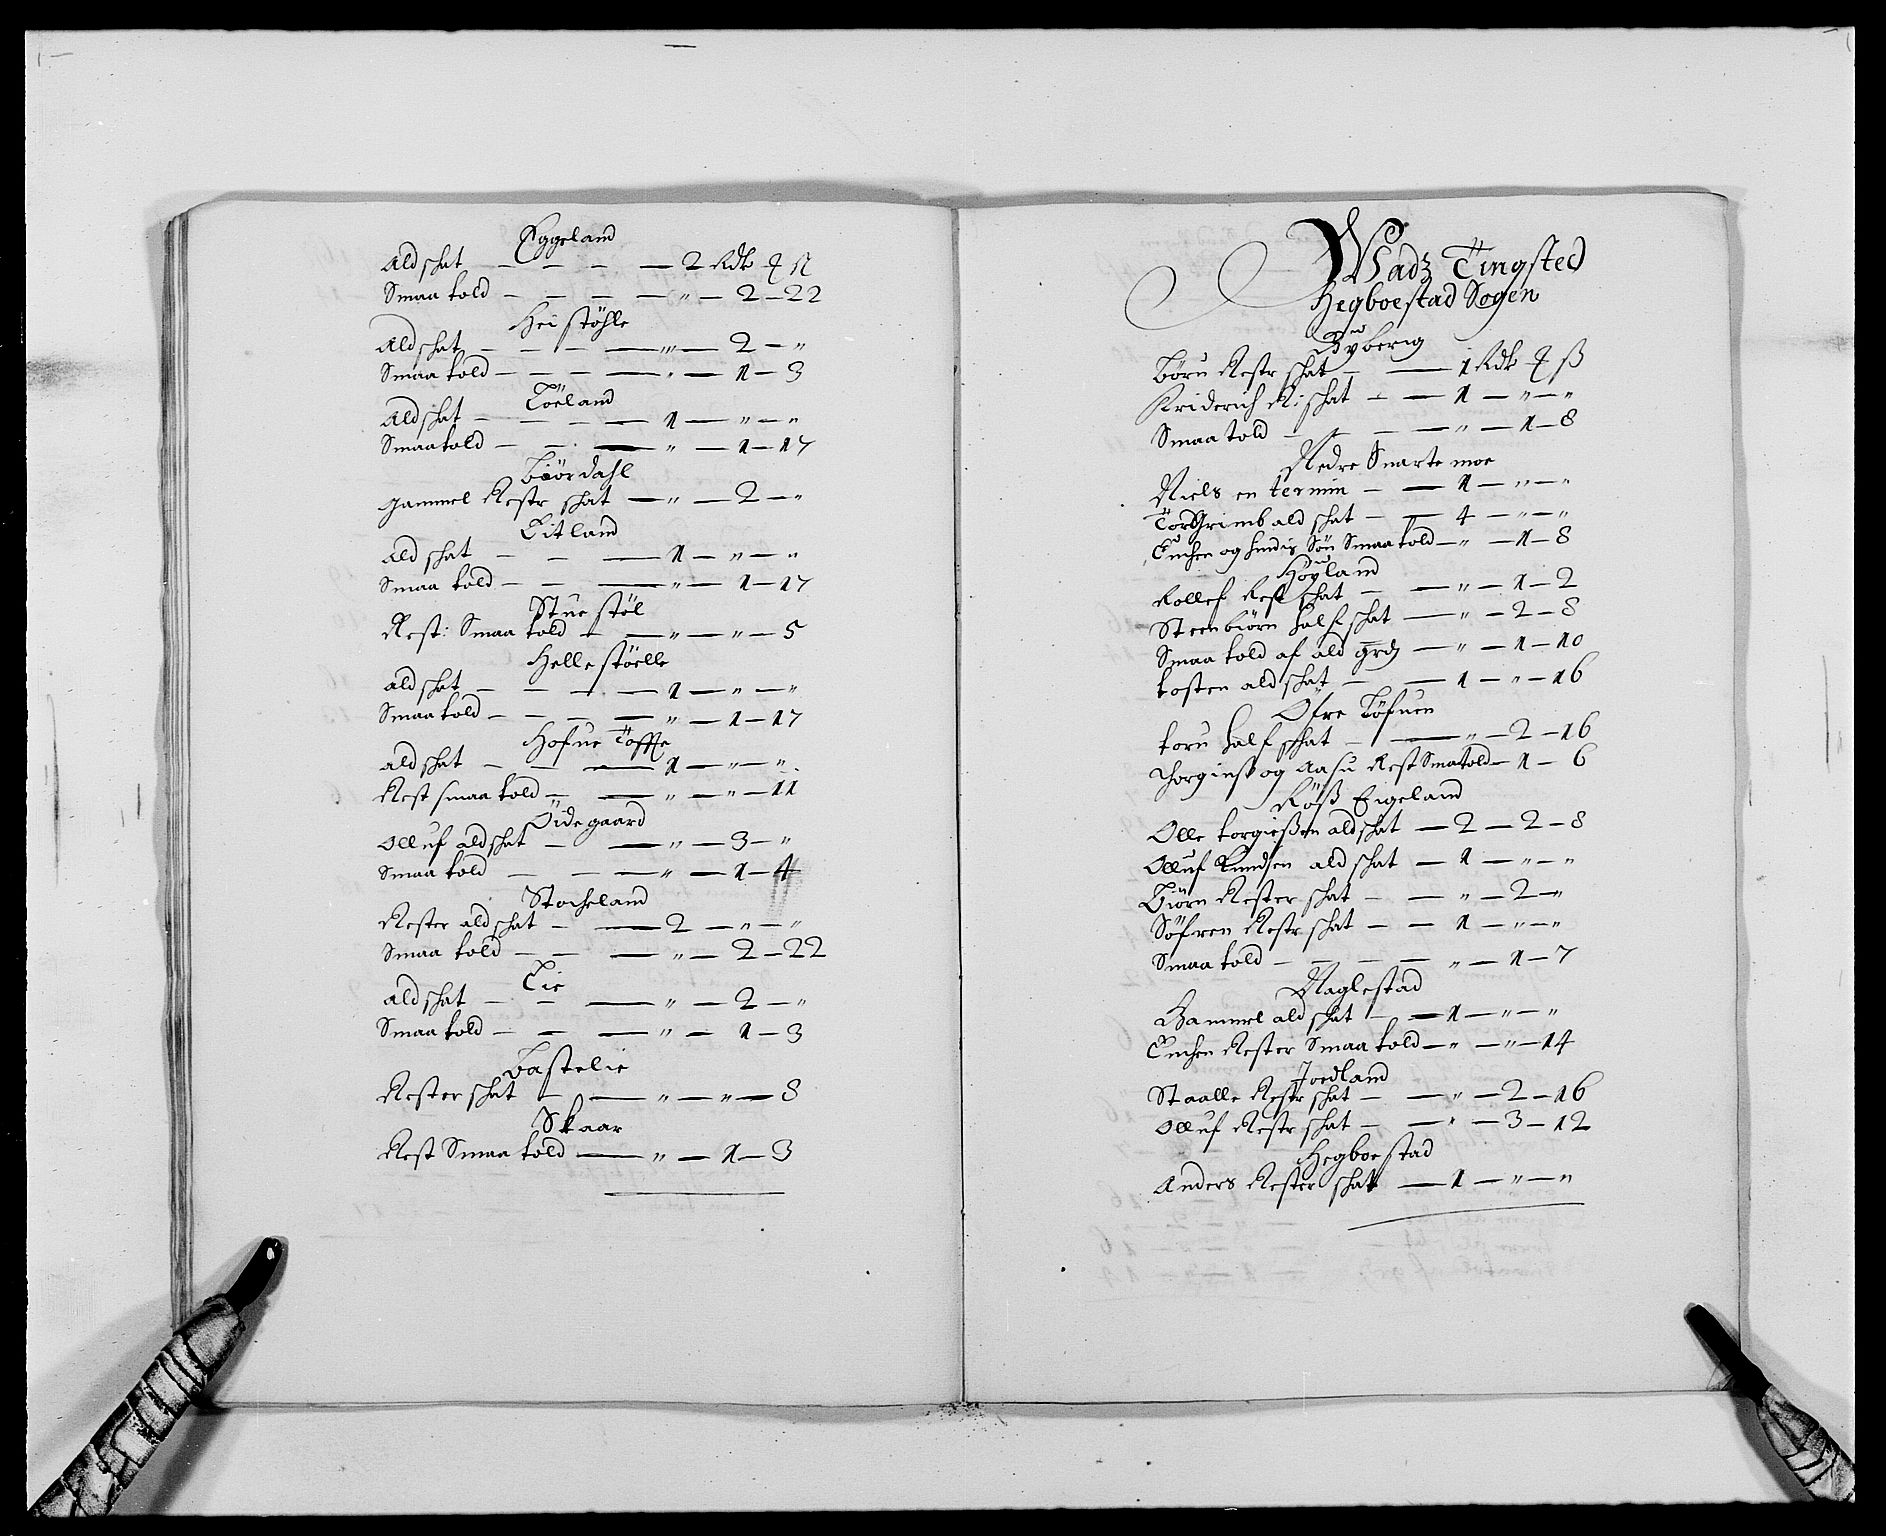 Eggeland
Ald schat — — — — 2 Rdr ꝗ ß
Smaa told — — — — „ — 2 — 22
Hei støhle
Ald schat — — — — „ — 2 — „
Smaa told — — — — „ — 1 — 3
Töeland
Ald schat — — — — 1 — „ — „
Smaa told — — — „ — 1 — 17
Biördahl
gammel Rester schat — „ — 2 — „
Eitland
Ald schat — — — 1 — „ — „
Smaa told — — — „ — 1 — 17
Stue støl
Rest: Smaa told — — „ — „ — 5
Helle støelle
ald schat — — — — 1 — „ — „
Smaa told — — — — „ — 1 — 17
Hofue Toffte
ald schat — — — 1 — „ — „
Rest smaa told — — „ — „ — 11
Öidegaard
Olluf ald schat — — „ — 3 — „
Smaa told — — — „ — 1 — 4
Stocheland
Rester ald schat — — 2 — „ — „
Smaa told — — — „ — 2 — 22
Lie
ald schat — — — „ — 2 — „
Smaa told — — — „ — 1 — 3
Bastelie
Rester schat — — „ — „ — 8
Skaar
Rest Smaa told — „ — 1 — 3
Wadz Tingsted
Hegboestad Sogen
Byberig
Böru Restr schat — — 1 Rdr ꝗ ß
Friderich Ri schat — — 1 — „ — „
Smaa told — — — — „ — 1 — 8
Nedre Snarte moe
Niels en termin — — 1 — „ — „
TorGrimb ald schat — — 4 — „ — „
Enchen og hindis Søn Smaa told — „ — 1 — 8
Höyland
Rollef Rest schat — — „ — 1 — 2
Steenbiörn half schat — „ — 2 — 8
Smaa told af ald grd — „ — 1 — 10
tosten ald schat — — 1 — „ — 16
Öfre Töfuen
toru half schat — — „ — 2 — 16
Thorgiusß og Aasu Rest Smatold — 1 — 6
Röß Eigeland
Olle torgießen ald schat — 2 — 2 — 8
Olluf Knudsen ald schat — 1 — „ — „
Biörn Rester schat — — „ — 2 — „
Söfren Restr schat — — 1 — „ — „
Smaa told — — — — „ — 1 — 7
Naglestad
Gammel ald schat — — 1 — „ — „
Enchen Rester Smaa told — „ — „ — 14
Joedland
Staalle Restr schat — — „ — 2 — 16
Olluf Restr schat — — „ — 3 — 12
Hegboestad
Anders Rester schat — 1 — „ — „